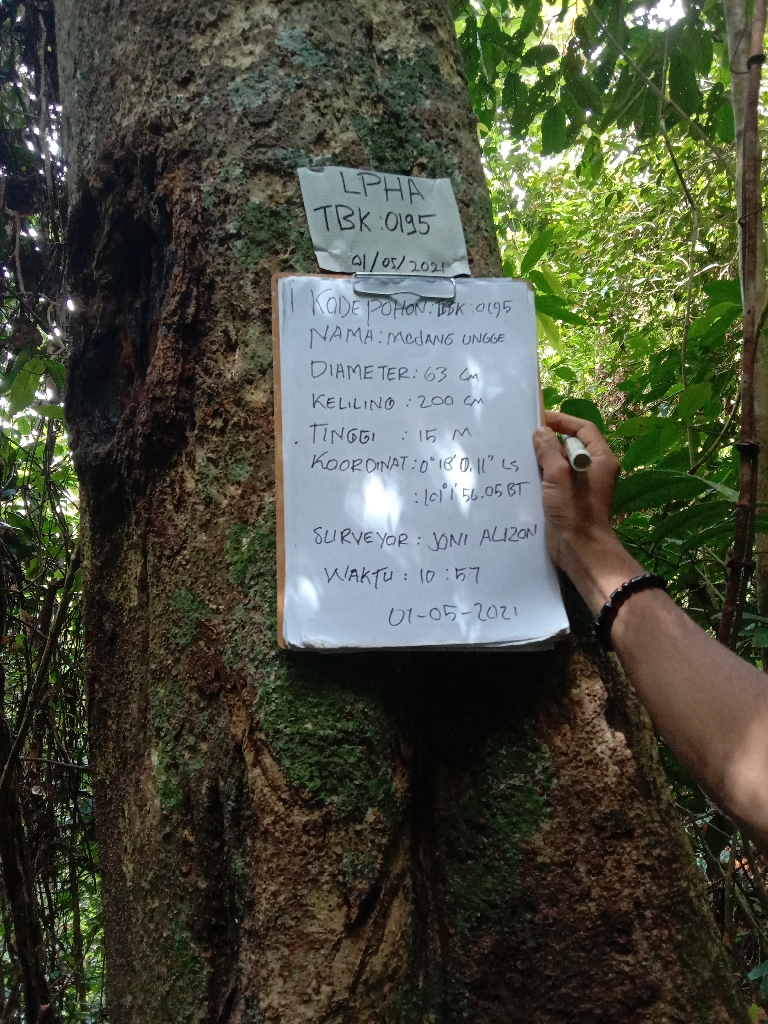 LPHA
TBK:0195
01/05/2021
1 KODE POHON: TBK:0195
NAMA: MEDANG UNGGE
DIAMETER: 63 CM
KELILING : 200 CM
TINGGI : 15 M
KOORDINAT: 0°18'0,11" LS
: 101°1'56.05 BT
SURVEYOR : JONI ALIZON
WAKTU : 10 : 57
01-05-2021